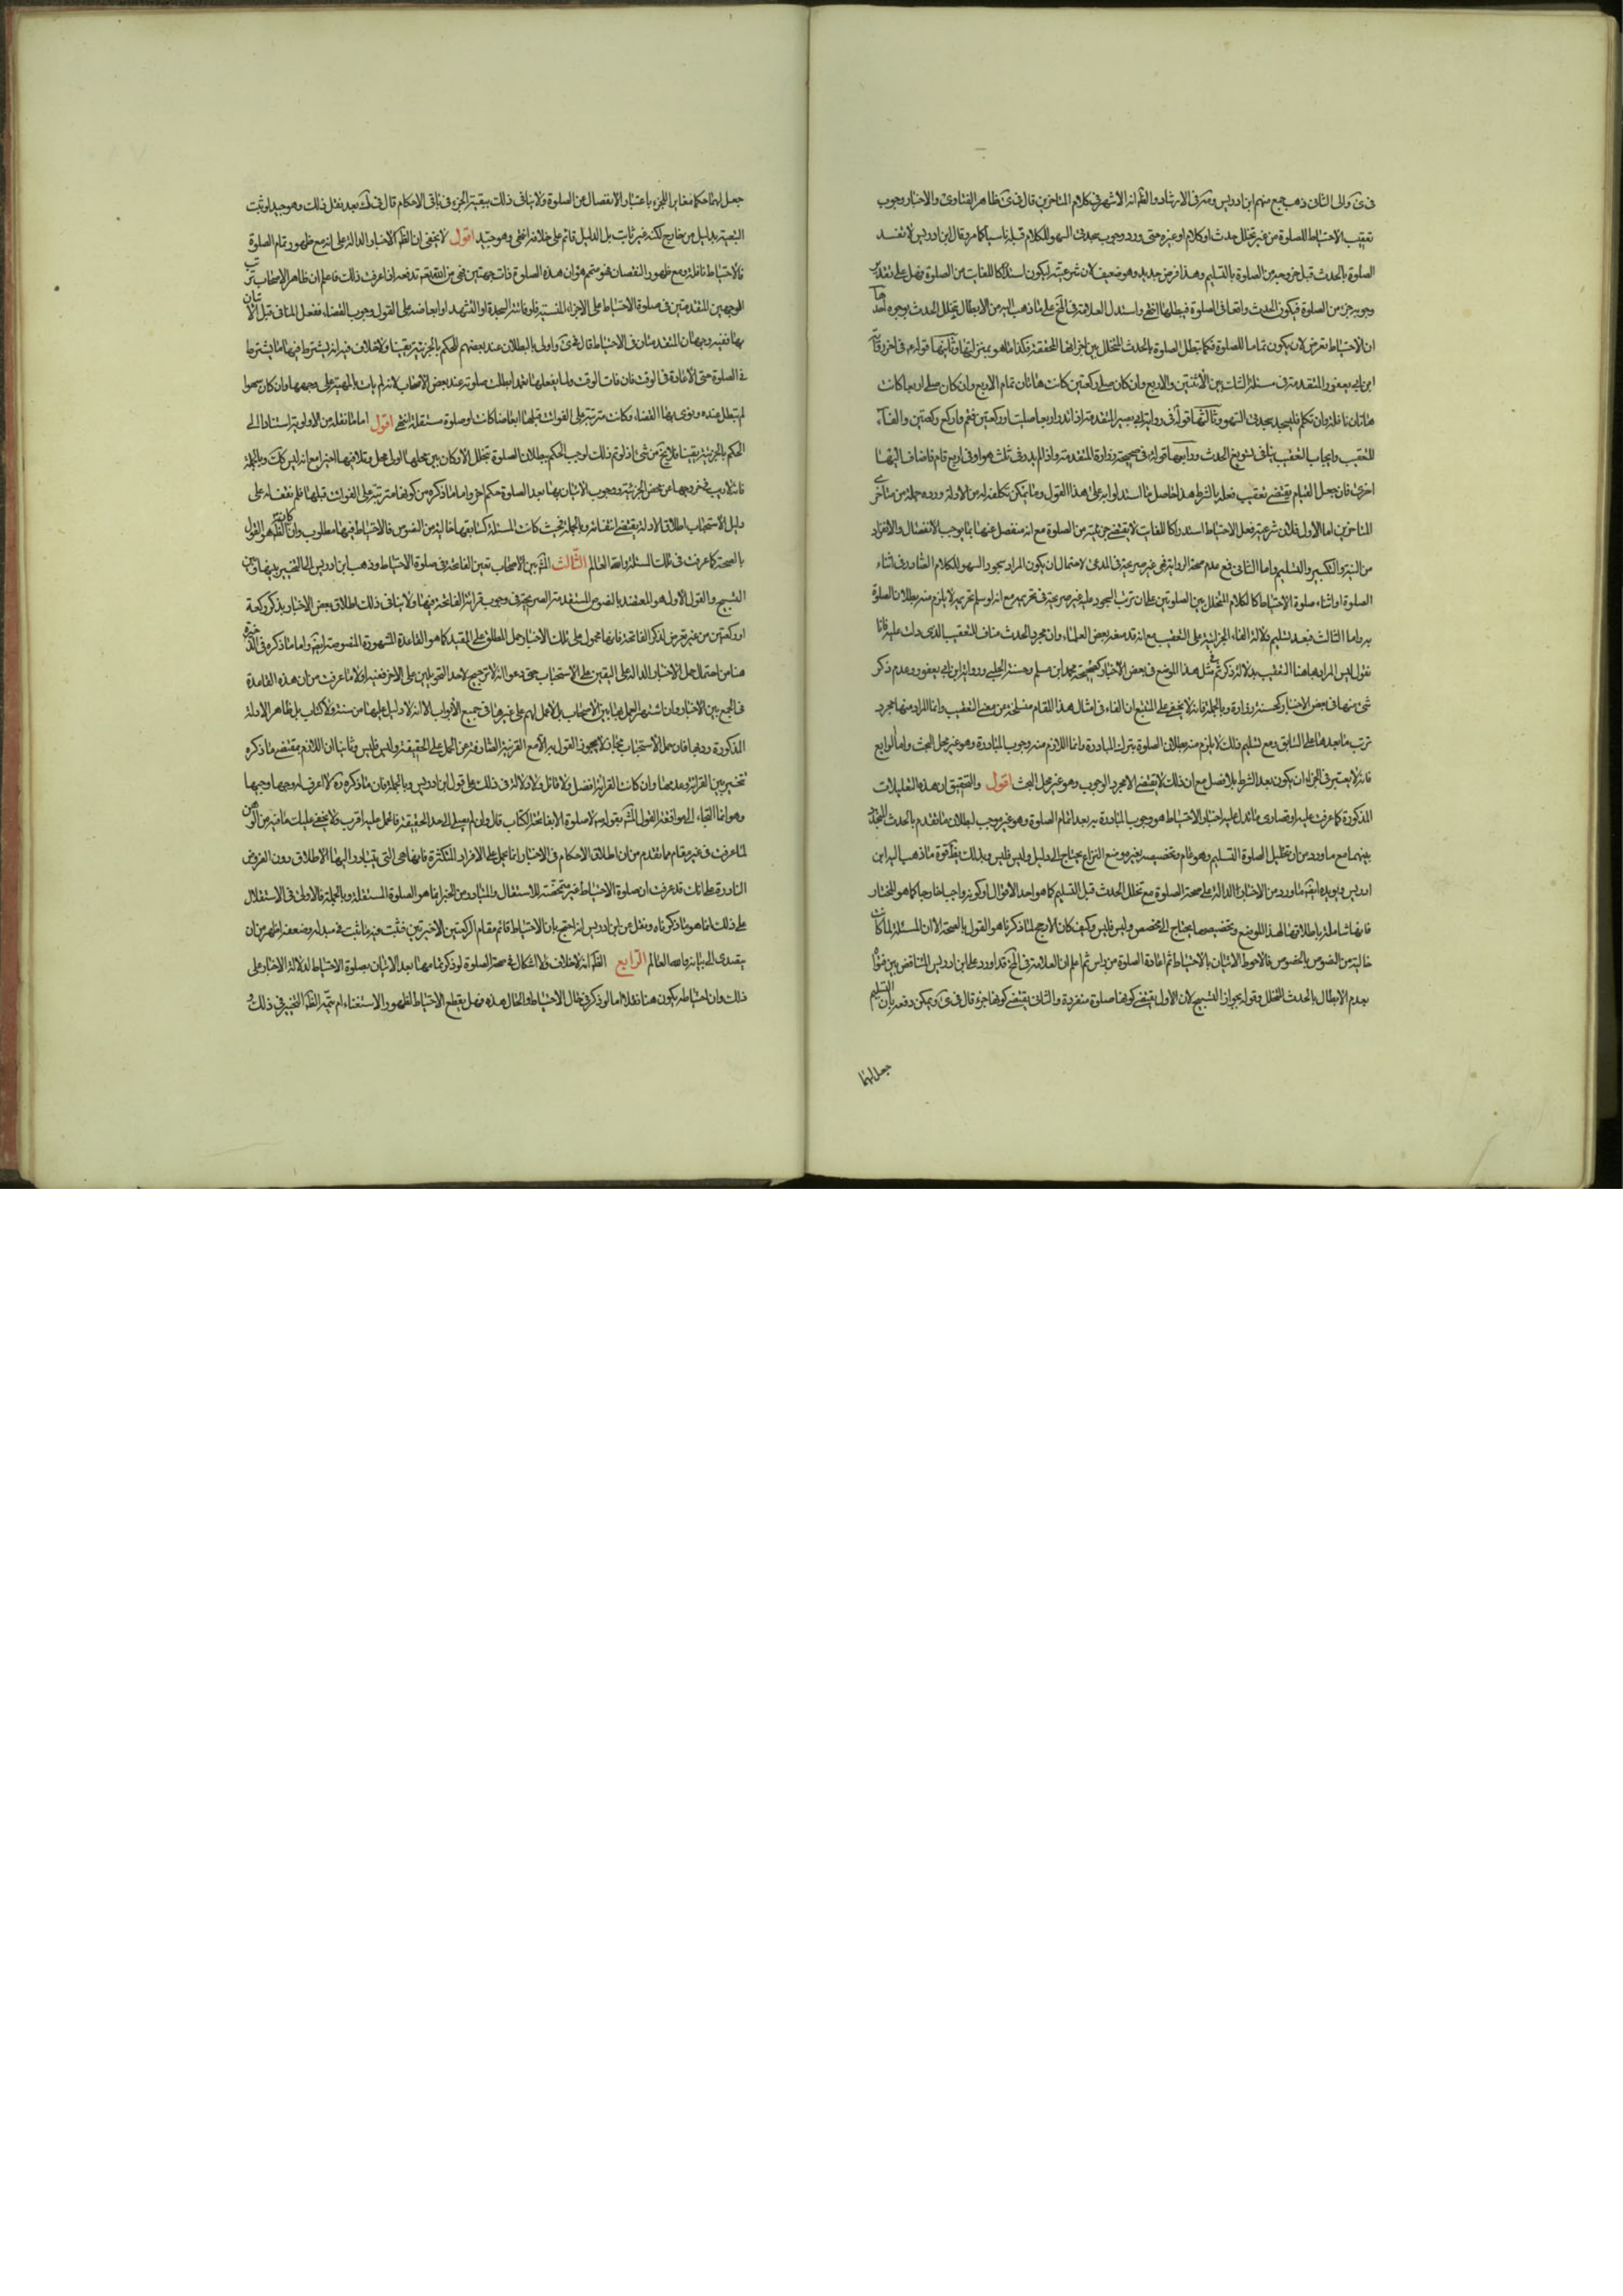 فى ى والى الثانى ذهب جمع منهم ابن ادريس ومنه فى الارشاد والظ انه الاشهر فى كلام المتاخرين قال فى ى ظاهر الفتاوى والاخبار وجوب
تعقيب الاحتياط للصلوة من غير تخلل حدث اوكلام او غيره حتى ورد وجوب سجدتى السهو للكلام قبله ناسيا كما مر وقال ابن ادريس لا تفسد
الصلوة بالحدث قبل خروجه من الصلوة بالتسليم وهذا فرض جديد وهو ضعيف لان شرعيته ليكون استدراكا للفايت من الصلوة فهل على تقدير
وجوبه جزء من الصلوة فيكون الحدث واقعا فى الصلوة فيبطلها انتهى واستدل العلامة فى المخ على ما ذهب اليه من الابطال بتخلل الحدث بوجوه احدها
ان الاحتياط معرض لان يكون تماما للصلوة فكما تبطل الصلوة بالحدث المتخلل بين اجزائها المحققة فكذا ما هو بمنزلتها وثانيها قوله ع فى اخر رواية
ابن ابى يعفور المتقدمة فى مسئلة الشك بين الاثنتين والاربع وان كان صلى ركعتين كانت هاتان تمام الاربع وان كان صلى اربعا كانت
هاتان نافلة وان تكلم فليسجد سجدتى السهو وثالثها قوله فى رواية ابى بصير المتقدمة اذا لم تدر اربعا صليت او ركعتين فقم واركع ركعتين والفاء
للتعقيب وايجاب التعقيب ينافى تسويغ الحدث ورابعها قوله فى صحيحة زرارة المتقدمة واذا لم يدر فى ثلث هو او فى اربع قام فاضاف اليها
اخرى فان جعل القيام يقتضى تعقيب فعله بالشرط هذا حاصل ما استدلوا به على هذا القول وما يمكن تكلفه له من الادلة ورده جملة من متاخرى
المتاخرين اما الاول فلان شرعية فعل الاحتياط استدراكا للفايت لا يقتضى جزئيته من الصلوة مع انه منفصل عنها بما يوجب الانفصال والانفراد
من النية والتكبير والتسليم واما الثانى فمع عدم صحة الرواية فهى غير صريحة فى المدعى لاحتمال ان يكون المراد بسجود السهو للكلام الصادر فى اثناء
الصلوة او اثناء صلوة الاحتياط لا الكلام المتخلل بين الصلوتين على ان ترتب السجود عليه غير صريحة فى تحريمه مع انه لو سلم تحريمه لا يلزم منه بطلان الصلوة
به واما الثالث فبعد تسليم دلالة الفاء الجزائية على التعقيب مع انه قد منعه بعض العلماء وان مجرد الحدث مناف للتعقيب الذى دلت عليه فانا
نقول ليس المراد بها هنا التعقيب بدلالة ذكر ثم فى مثل هذا الموضع فى بعض الاخبار كصحيحة محمد بن مسلم وحسنة الحلبى ورواية ابن ابى يعفور وعدم ذكر
شئ منها فى بعض الاخبار كحسنة زرارة وبالجملة فانه لا يخفى على المتتبع ان الفاء فى امثال هذا المقام منسلخة من معنى التعقيب وانما المراد منها مجرد
ترتب ما بعدها على السابق ومع تسليم ذلك لا يلزم منه بطلان الصلوة بترك المبادرة وانما اللازم منه وجوب المبادرة وهو غير محل البحث واما الرابع
فانه لا يعتبر فى الجزاء ان يكون بعد الشرط بلا فصل مع ان ذلك لا يقتضى الا مجرد الوجوب وهو غير محل البحث اقول والتحقيق ان هذه التعليلات
المذكورة كما عرفت عليلة وقصارى ما تدل عليه اخبار الاحتياط هو وجوب المبادرة به بعد اتمام الصلوة وهو غير موجب لبطلان ما تقدم بالحدث المتخلل
بينهما مع ما ورد من ان تحليل الصلوة التسليم وهو عام وتخصيصه بغير موضع النزاع يحتاج الى دليل وليس فليس وبذلك يظهر قوة ما ذهب اليه ابن
ادريس ويؤيده ايضا ما ورد من الاخبار الدالة على صحة الصلوة مع تخلل الحدث قبل التسليم كما هو احد الاقوال او كونه واجبا خارجا كما هو المختار
فانها شاملة باطلاقها لهذا الموضع وتخصيصها يحتاج الى مخصص وليس فليس وكيف كان فالارجح لما ذكرنا هو القول بالصحة الا ان المسئلة لما كانت
خالية من النصوص بالخصوص فالاحوط الاتيان بالاحتياط ثم اعادة الصلوة من راس ثم اعلم ان العلامة فى المخ قد اورد على ابن ادريس التناقض بين قوله
بعدم الابطال بالحدث المتخلل وقوله بجواز التسبيح لان الاول يقتضى كونها صلوة منفردة والثانى يقتضى كونها جزء قال فى ى ويمكن دفعه بان التسليم
جعل لهما
جعل لهما حكما مغايرا للجزء باعتبار الانفصال عن الصلوة ولا ينافى ذلك تبعية الجزء فى باقى الاحكام قال فى ك بعد نقل ذلك وهو جيد لو ثبت
التبعية بدليل من خارج لكنه غير ثابت بل الدليل قائم على خلافه انتهى وهو جيد اقول لا يخفى ان الظ من الاخبار الدالة على انه مع ظهور تمام الصلوة
فالاحتياط نافلة ومع ظهور النقصان فهو متمم هو ان هذه الصلوة ذات جهتين فهى من اذا عرفت ذلك فاعلم ان ظاهر الاصحاب ترتب
الوجهين المتقدمين فى صلوة الاحتياط على الاجزاء المنسية فلو فاتته السجدة او التشهد او ابعاضه على القول بوجوب القضاء ففعل المنافى قبل الاتيان
بها ففيه وجهان المتقدمان فى الاحتياط قال فى ى واولى بالبطلان عند بعضهم للحكم بالجزئية يقينا ولا خلاف فيه انه يشترط فيها ما يشترط
فى الصلوة حتى الاعادة فى الوقت فان فات الوقت ولما يفعلها عمدا بطلت صلوته عند بعض الاصحاب لانه لم يات بالمهية على وجهها وان كان سهوا
لم تبطل عنده ونوى بها القضاء وكانت مترتبة على الفوائت قبلها ابعاضا كانت او صلوة مستقلة انتهى اقول اما ما نقله من الاولوية استنادا الى
الحكم بالجزئية يقينا فلا يخ من شئ اذ لو تم ذلك لوجب الحكم ببطلان الصلوة بتخلل الاركان بين محلها الاول ومحل تلافيها مع انه ليس كك وبالجملة
فانه لا ريب فى خروجها عن محض الجزئية ووجوب الاتيان بها بعد الصلوة حكم اخر واما ما ذكره من كونها مترتبة على الفوائت قبلها فلم نقف له على
دليل واستصحاب اطلاق الادلة يقتضى نفيه وبالجملة فحيث كانت المسئلة كسابقتها خالية من النصوص فالاحتياط فيها مطلوب وان كان الظ هو القول
بالصحة كما عرفت فى تلك المسئلة والله العالم الثالث المش بين الاصحاب تعين الفاتحة فى صلوة الاحتياط وذهب ابن ادريس الى التخيير بينها وبين
التسبيح والقول الاول هو المعتضد بالنصوص المتقدمة الصريحة فى وجوب قرائة الفاتحة فيها ولا ينافى ذلك اطلاق بعض الاخبار بذكر ركعة
او ركعتين من غير تعرض لذكر الفاتحة فانها محمول على تلك الاخبار حمل المطلق على المقيد كما هو القاعدة المشهورة المنصوصة ايضا واما ما ذكره فى الذخيرة
هنا من احتمال حمل الاخبار الدالة على التعيين على الاستحباب بدعوى انه لا ترجيح لاحد التاويلين على الاخر ففيه اولا ما عرفت من ان هذه القاعدة
فى الجمع بين الاخبار وان اشتهر العمل بها بين الاصحاب بل لا عمل لهم على غيرها فى جميع الابواب الا انه لا دليل عليها من سنة ولا كتاب بل ظاهر الادلة
المذكورة ردها فان حمل الاستحباب مجاز لا يجوز القول به الا مع القرينة الصارفة عن الحمل على الحقيقة وليس فليس وثانيا ان اللازم بمقتضى ما ذكره
تخيير بين القرائة وعدمها وان كانت القرائة افضل ولا قائل ولا دلالة فى ذلك على قول ابن ادريس وبالجملة فان ما ذكره ره لا اعرف له وجها وجيها
لما عرفت فى غير مقام مما تقدم من ان اطلاق الاحكام فى الاخبار انما يحمل على الافراد المتكثرة فانها هى التى يتبادر اليها الاطلاق دون الفروض
النادرة على انك قد عرفت ان صلوة الاحتياط غير متمحضة للاستقلال والمتبادر من الخبر انما هو الصلوة المستقلة وبالجملة فالاولى فى الاستدلال
على ذلك انما هو ما ذكرناه ونقل عن ابن ادريس انه احتج بان الاحتياط قائم مقام الركعتين الاخيرتين فثبت فيه ما ثبت فى مبدله وضعفه اظهر من ان
يتصدى الى بيانه والله العالم الرابع الظ انه لا خلاف ولا اشكال فى صحة الصلوة لو ذكر تمامها بعد الاتيان بصلوة الاحتياط لدلالة الاخبار على
ذلك وان احتياطه يكون هنا نفلا اما لو ذكر فى خلال الاحتياط والحال هذه فهل يقطع الاحتياط لظهور الاستغناء ام يتمه الظ التخيير فى ذلك